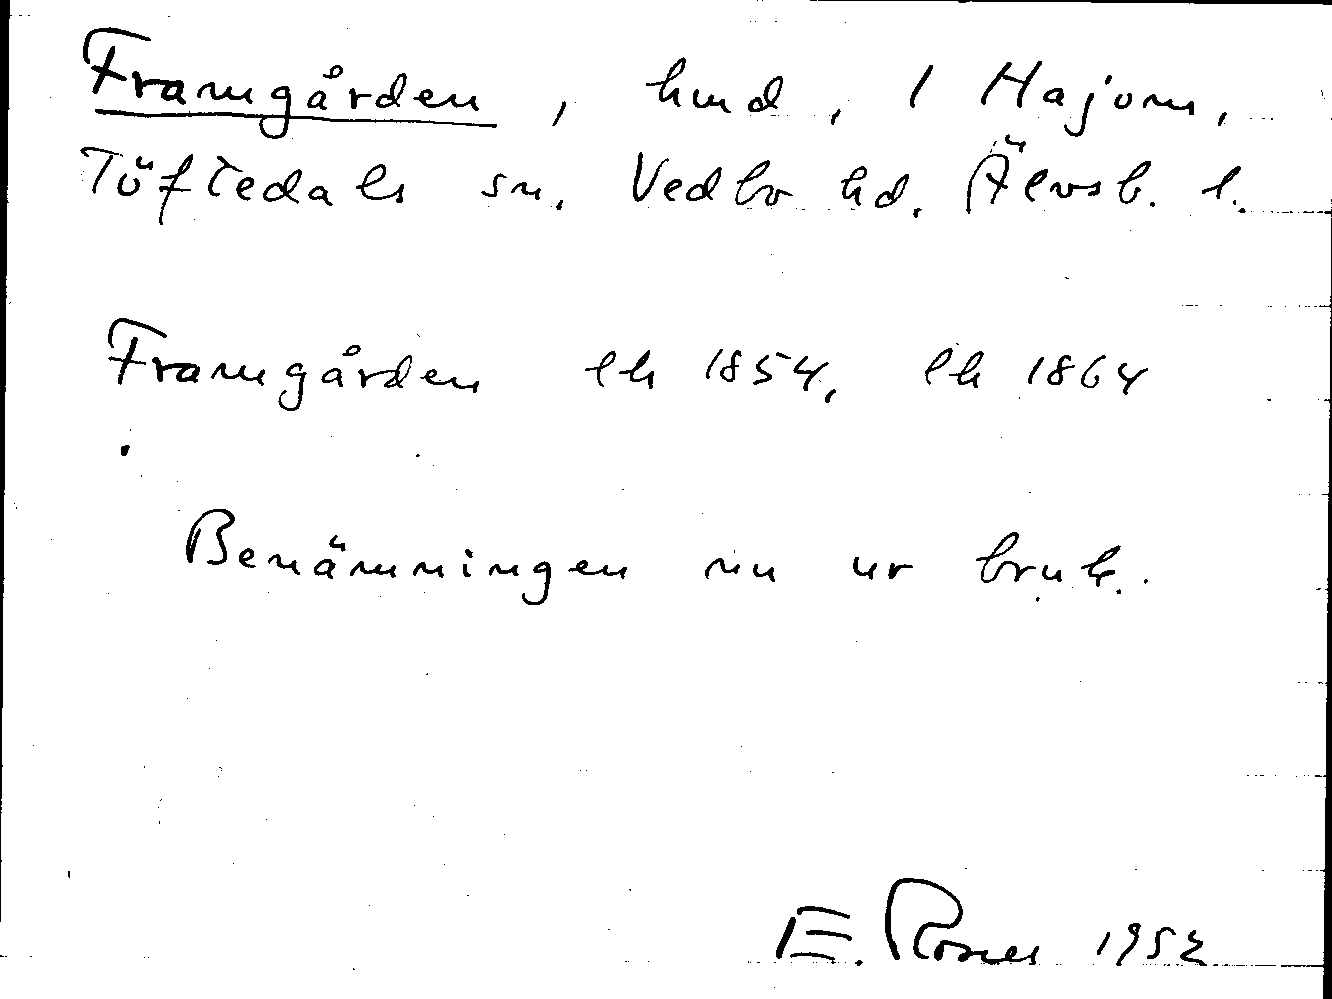 Framgården, hmd, 1 Hajom,
Töftedals sn. Vedbo hd. Älvsb. l.
Framgården lh 1854, lh 1864
Benämningen nu ur bruk.
E. Rosell 1952